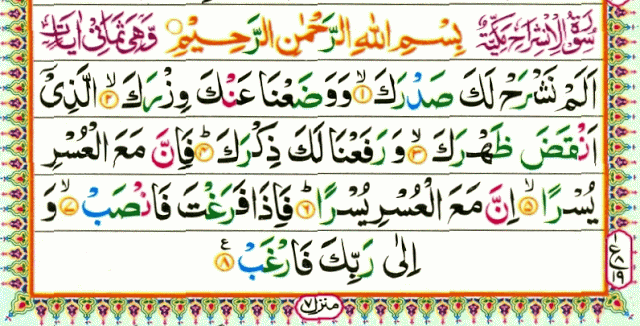 سُوْرَةُ الْاِنْشِرَاحِ مَكِّيَّةٌ بِسْمِ اللّٰهِ الرَّحْمٰنِ الرَّحِيْمِ وَهِيَ ثَمَانِيْ اٰيَاتٍ
اَلَمْ نَشْرَحْ لَكَ صَدْرَكَ ۙ﴿۱﴾ وَوَضَعْنَا عَنْكَ وِزْرَكَ ۙ﴿۲﴾ الَّذِیْۤ
اَنْقَضَ ظَهْرَكَ ۙ﴿۳﴾ وَ رَفَعْنَا لَكَ ذِكْرَكَ ؕ﴿۴﴾ فَاِنَّ مَعَ الْعُسْرِ
يُسْرًا ۙ﴿۵﴾ اِنَّ مَعَ الْعُسْرِ يُسْرًا ؕ﴿۶﴾ فَاِذَا فَرَغْتَ فَانْصَبْ ۙ﴿۷﴾ وَ
اِلٰى رَبِّكَ فَارْغَبْ ﴿۸﴾ ع
منزل ۷